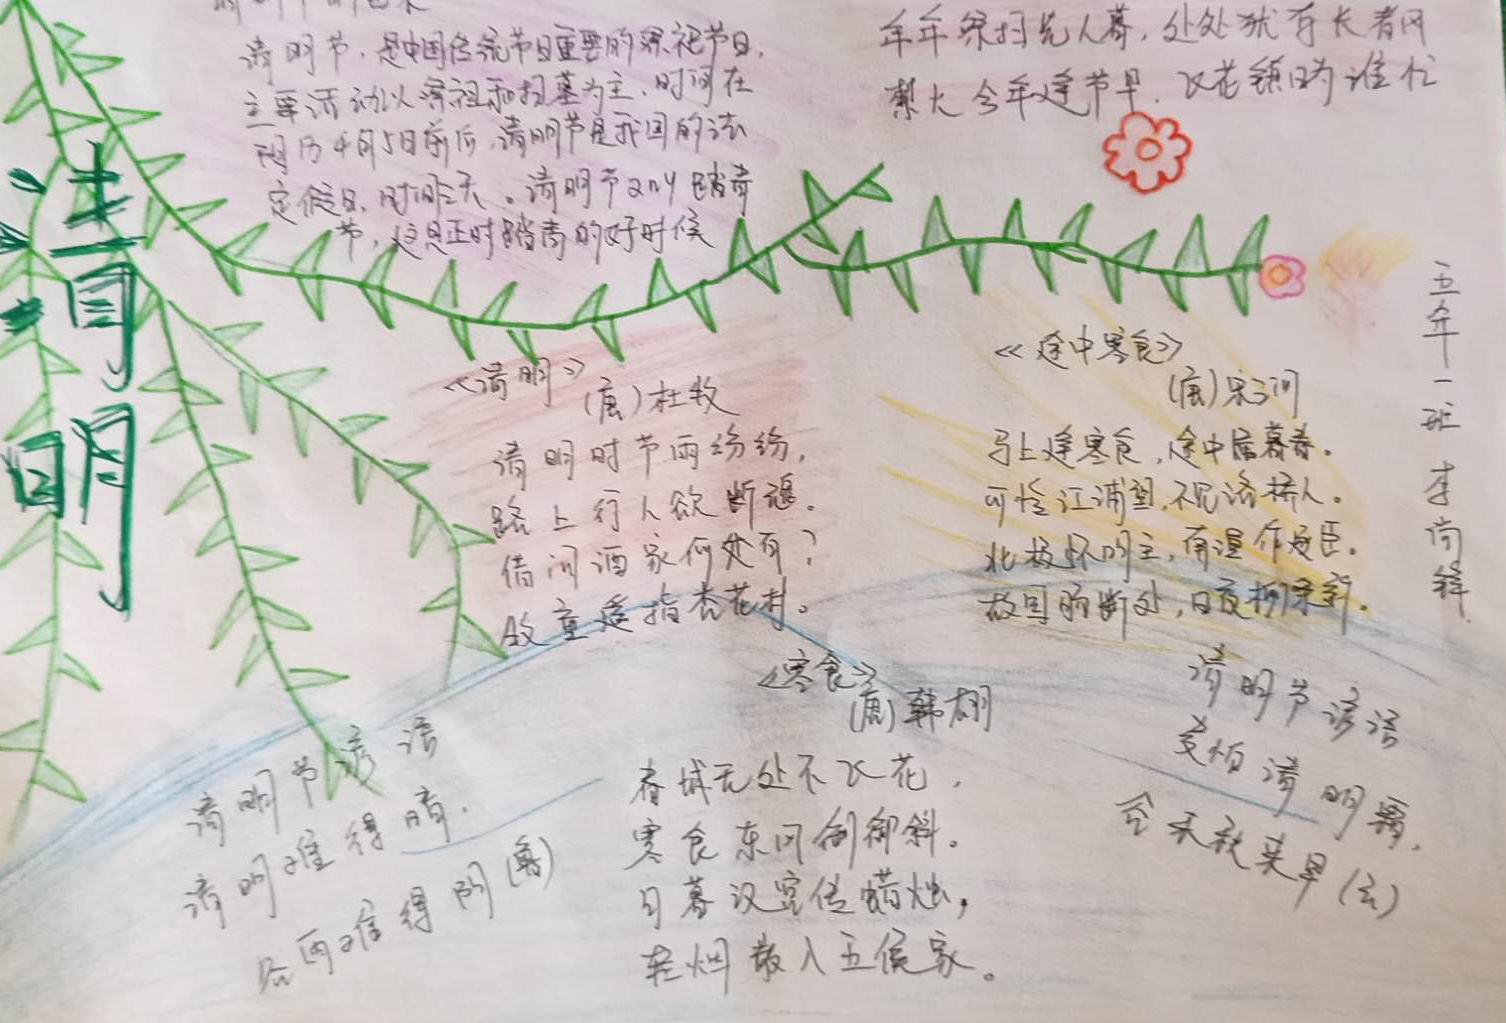 清明
清明节，是中国传统节日重要的祭祀节日，
主要活动以祭祖和扫墓为主，时间在
阳历4月5日前后，清明节是我国的法
定假日，时间三天。清明节又叫踏青
节，这是正时踏青的好时候
年年祭扫先人墓，处处犹有长者风
今年逢节早，飞花镇日为谁忙
《清明》
(唐)杜牧
清明时节雨纷纷，
路上行人欲断魂。
借问酒家何处有？
牧童遥指杏花村。
《途中寒食》
(唐)宋之问
马上逢寒食，途中属暮春。
可怜江浦望，不见洛桥人。
北极怀明主，南溟作逐臣。
故园肠断处，日夜柳条新。
五年一班 李尚
《寒食》
(唐)韩翃
春城无处不飞花，
寒食东风御柳斜。
日暮汉宫传蜡烛，
轻烟散入五侯家。
清明节谚语
清明难得晴，
谷雨难得阴(鲁)
清明节谚语
麦怕清明霜，
谷要秋来旱(云)